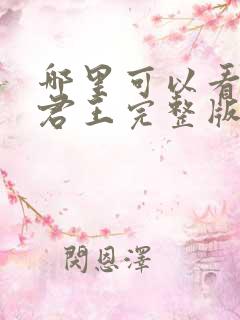 哪里可以看
君王完整版
閔恩澤